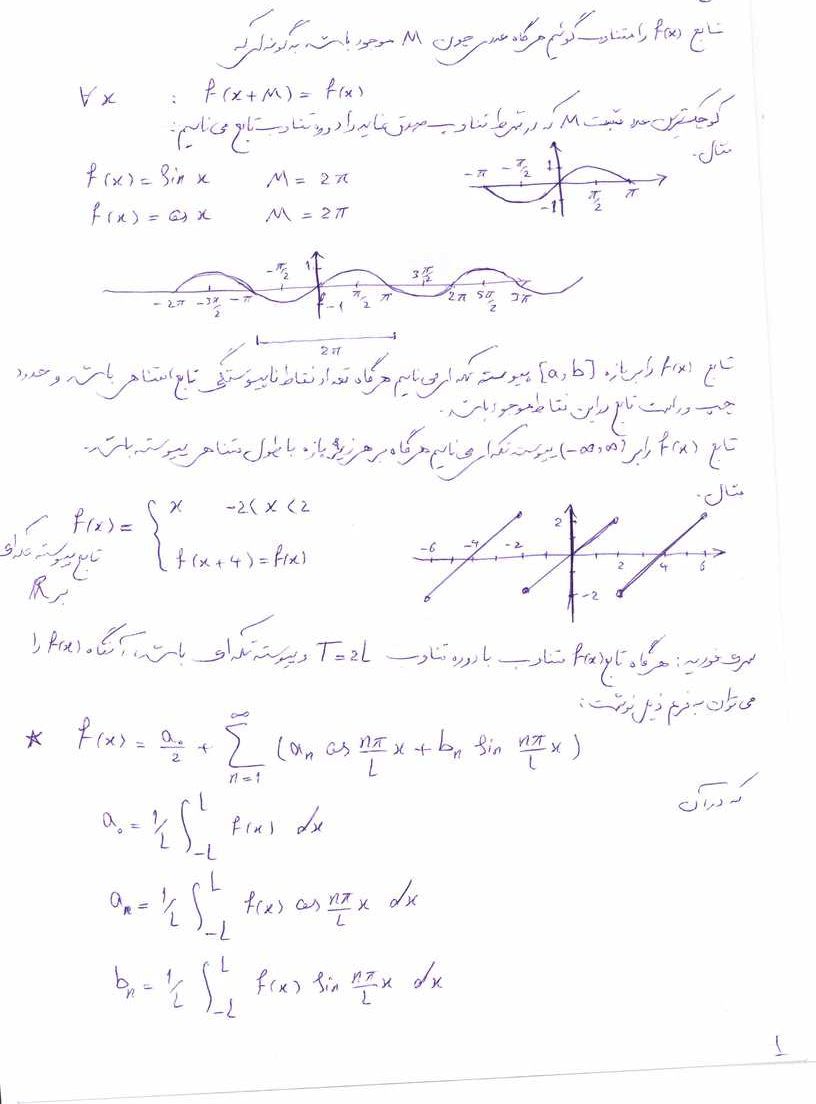 تابع f(x) را متناوب گوئیم هرگاه عددی چون M موجود باشد، به گونه‌ای که
∀x : f(x+M) = f(x)
کوچکترین عدد مثبت M که در شرط تناوب صدق نماید را دوره تناوب تابع می نامیم:
مثال.
f(x) = Sin x M = 2π
f(x) = cos x M = 2π
-π -π/2 1 -1 π/2 π
-2π -3π/2 -π -π/2 1 -1 π/2 π 3π/2 2π 5π/2 3π
2π
تابع f(x) را بر بازه [a,b] پیوسته تکه ای می نامیم هرگاه تعداد نقاط ناپیوستگی تابع متناهی باشد و حدود
چپ و راست تابع در این نقاط موجود باشد.
تابع f(x) را بر (-∞,∞) پیوسته تکه ای می نامیم هرگاه بر هر زیر بازه با طول متناهی پیوسته باشد.
مثال.
f(x) = { x -2<x<2
f(x+4)=f(x)
تابع پیوسته تکه‌ای
بر R
-6 -4 -2 2 -2 2 4 6
سری فوریه: هرگاه تابع f(x) متناوب با دوره تناوب T=2L و پیوسته تکه ای باشد، آنگاه f(x) را
می توان به فرم ذیل نوشت:
* f(x) = a₀/2 + ∑_{n=1}^{∞} (aₙ cos nπ/L x + bₙ Sin nπ/L x)
که در آن
a₀ = 1/L ∫_{-L}^{L} f(x) dx
aₙ = 1/L ∫_{-L}^{L} f(x) cos nπ/L x dx
bₙ = 1/L ∫_{-L}^{L} f(x) Sin nπ/L x dx
1